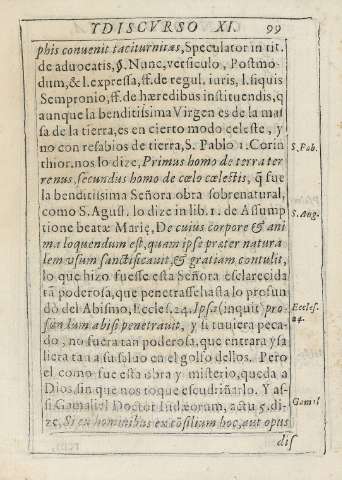 YDISCVRSO XI. 99
phis convenit taciturnitas, Speculator in tit.
de advocatis, §. Nunc, versiculo, Postmo-
dum, & l. expressa, ff. de regul. iuris, l. siquis
Sempronio, ff. de hæredibus instituendis, q̃
aunque la benditissima Virgen es de la ma-
sa de la tierra, es en cierto modo celeste, y
no con resabios de tierra, S. Pablo 1. Corin
thior. nos lo dize, Primus homo de terra ter
renus, secundus homo de cœlo cœlestis, q̃ fue
la benditissima Señora obra sobrenatural,
como S. Agust. lo dize in lib. 1. de Assump
tione beatæ Marię, De cuius corpore & ani
ma loquendum est, quam ipse præter natura
lem vsum sanctificauit, & gratiam contulit,
lo que hizo fuesse esta Señora esclarecida
tā poderosa, que penetrasse hasta lo profun
do del Abismo, Eccles. 24. Ipsa (inquit) pro-
fundum abisi penetrauit, y si tuuiera peca-
do, no fuera tan poderosa, que entrara y sa
liera tan a su saluo en el golfo dellos. Pero
el como fue esta obra y misterio, queda a
Dios, sin que nos toque escudriñarlo. Y as-
si Gamaliel Doctor Iudæorum, actu 5. di-
ze, Si ex hominibus est cōsilium hoc, aut opus
dis
S. Pab.
S. Aug.
Eccles.
24.
Gamal